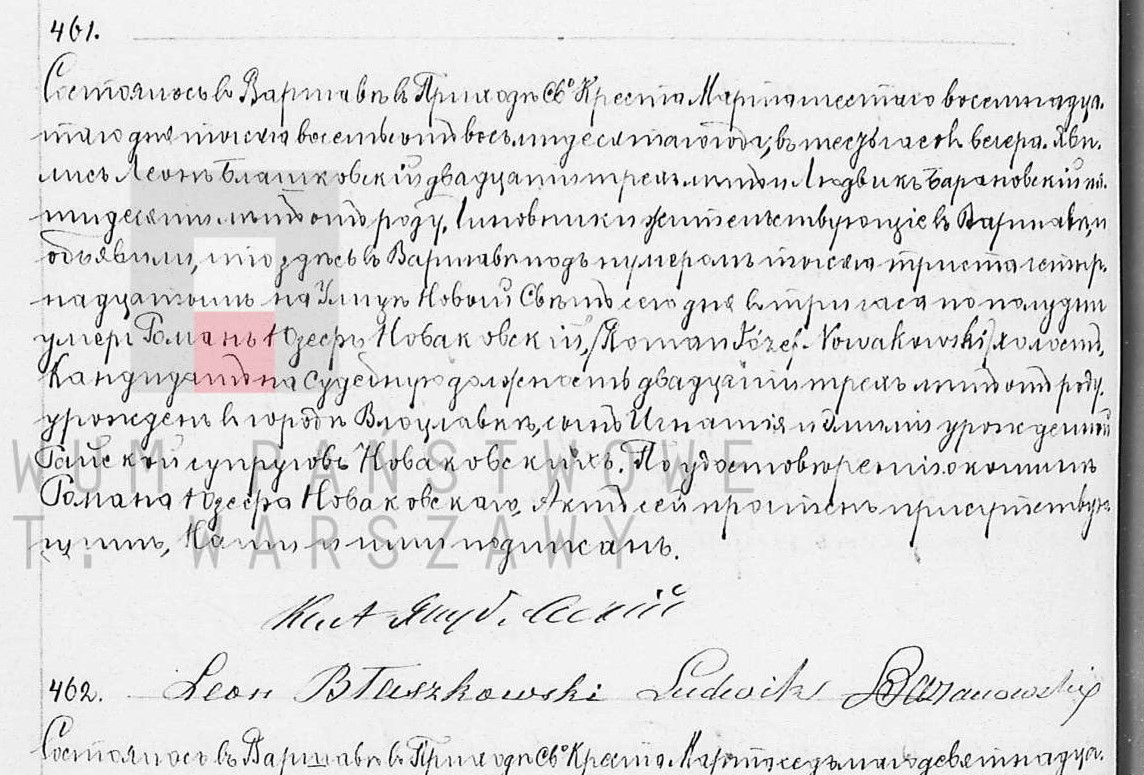 461.
Состоялось въ Варшавѣ въ Приходѣ Свº Креста Марта шестаго восемнадца-
таго дня тысяча восемьсотъ восьмидесятаго года, въ шесть часовъ вечера. Яви-
лись Леонъ Блашковскій двадцати трехъ лѣтъ и Людвикъ Барановскій пя-
тидесяти лѣтъ отъ роду, Чиновники жительствующіе въ Варшавѣ, и
объявили, что здѣсь въ Варшавѣ подъ нумеромъ тысяча триста четыр-
надцатымъ на Улицѣ Новый Свѣтъ сего дня въ три часа по полудни
умеръ Романъ Юзефъ Новаковскій, /Roman Józef Nowakowski/ холостъ,
Кандидатъ на Судебную должность двадцати трехъ лѣтъ отъ роду,
урожденъ въ городѣ Влоцлавкѣ, сынъ Игнатія и Эмиліи урожденной
Гайской супруговъ Новаковскихъ. По удостовѣреніи о кончинѣ
Романа Юзефа Новаковскаго, Актъ сей прочтенъ присутствую-
щимъ, Нами и ими подписанъ.
Leon Błaszkowski Ludwik Baranowski
462.
Состоялось въ Варшавѣ въ Приходѣ Свº Креста Марта седьмаго девятнадца-
WUM PAŃSTWOWE
T. WARSZAWY